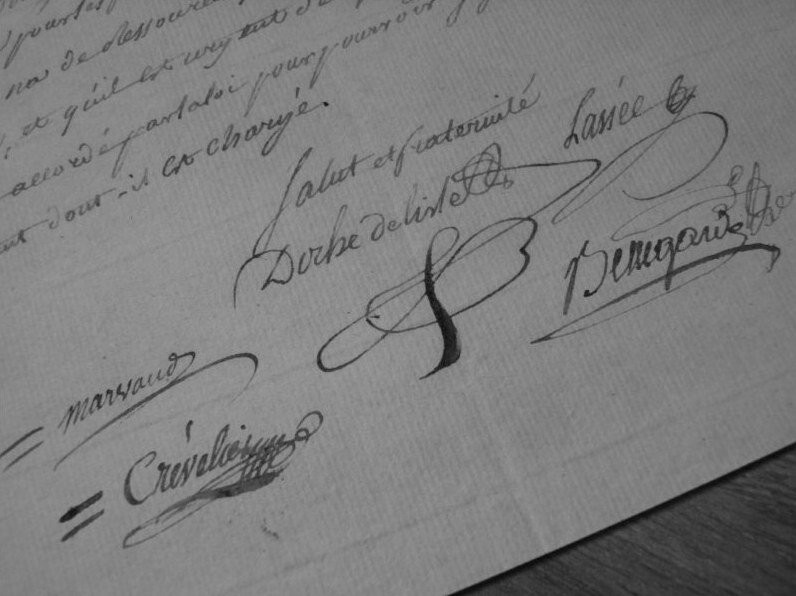 pour les
na de Ressource
, et qu'il est urgent de
accordé par la loi pour pourvoir
dont il est chargé.
Salut et fraternité
Dorbe delisle
Lassée
Beuregard
= marvaud
= Crévelier